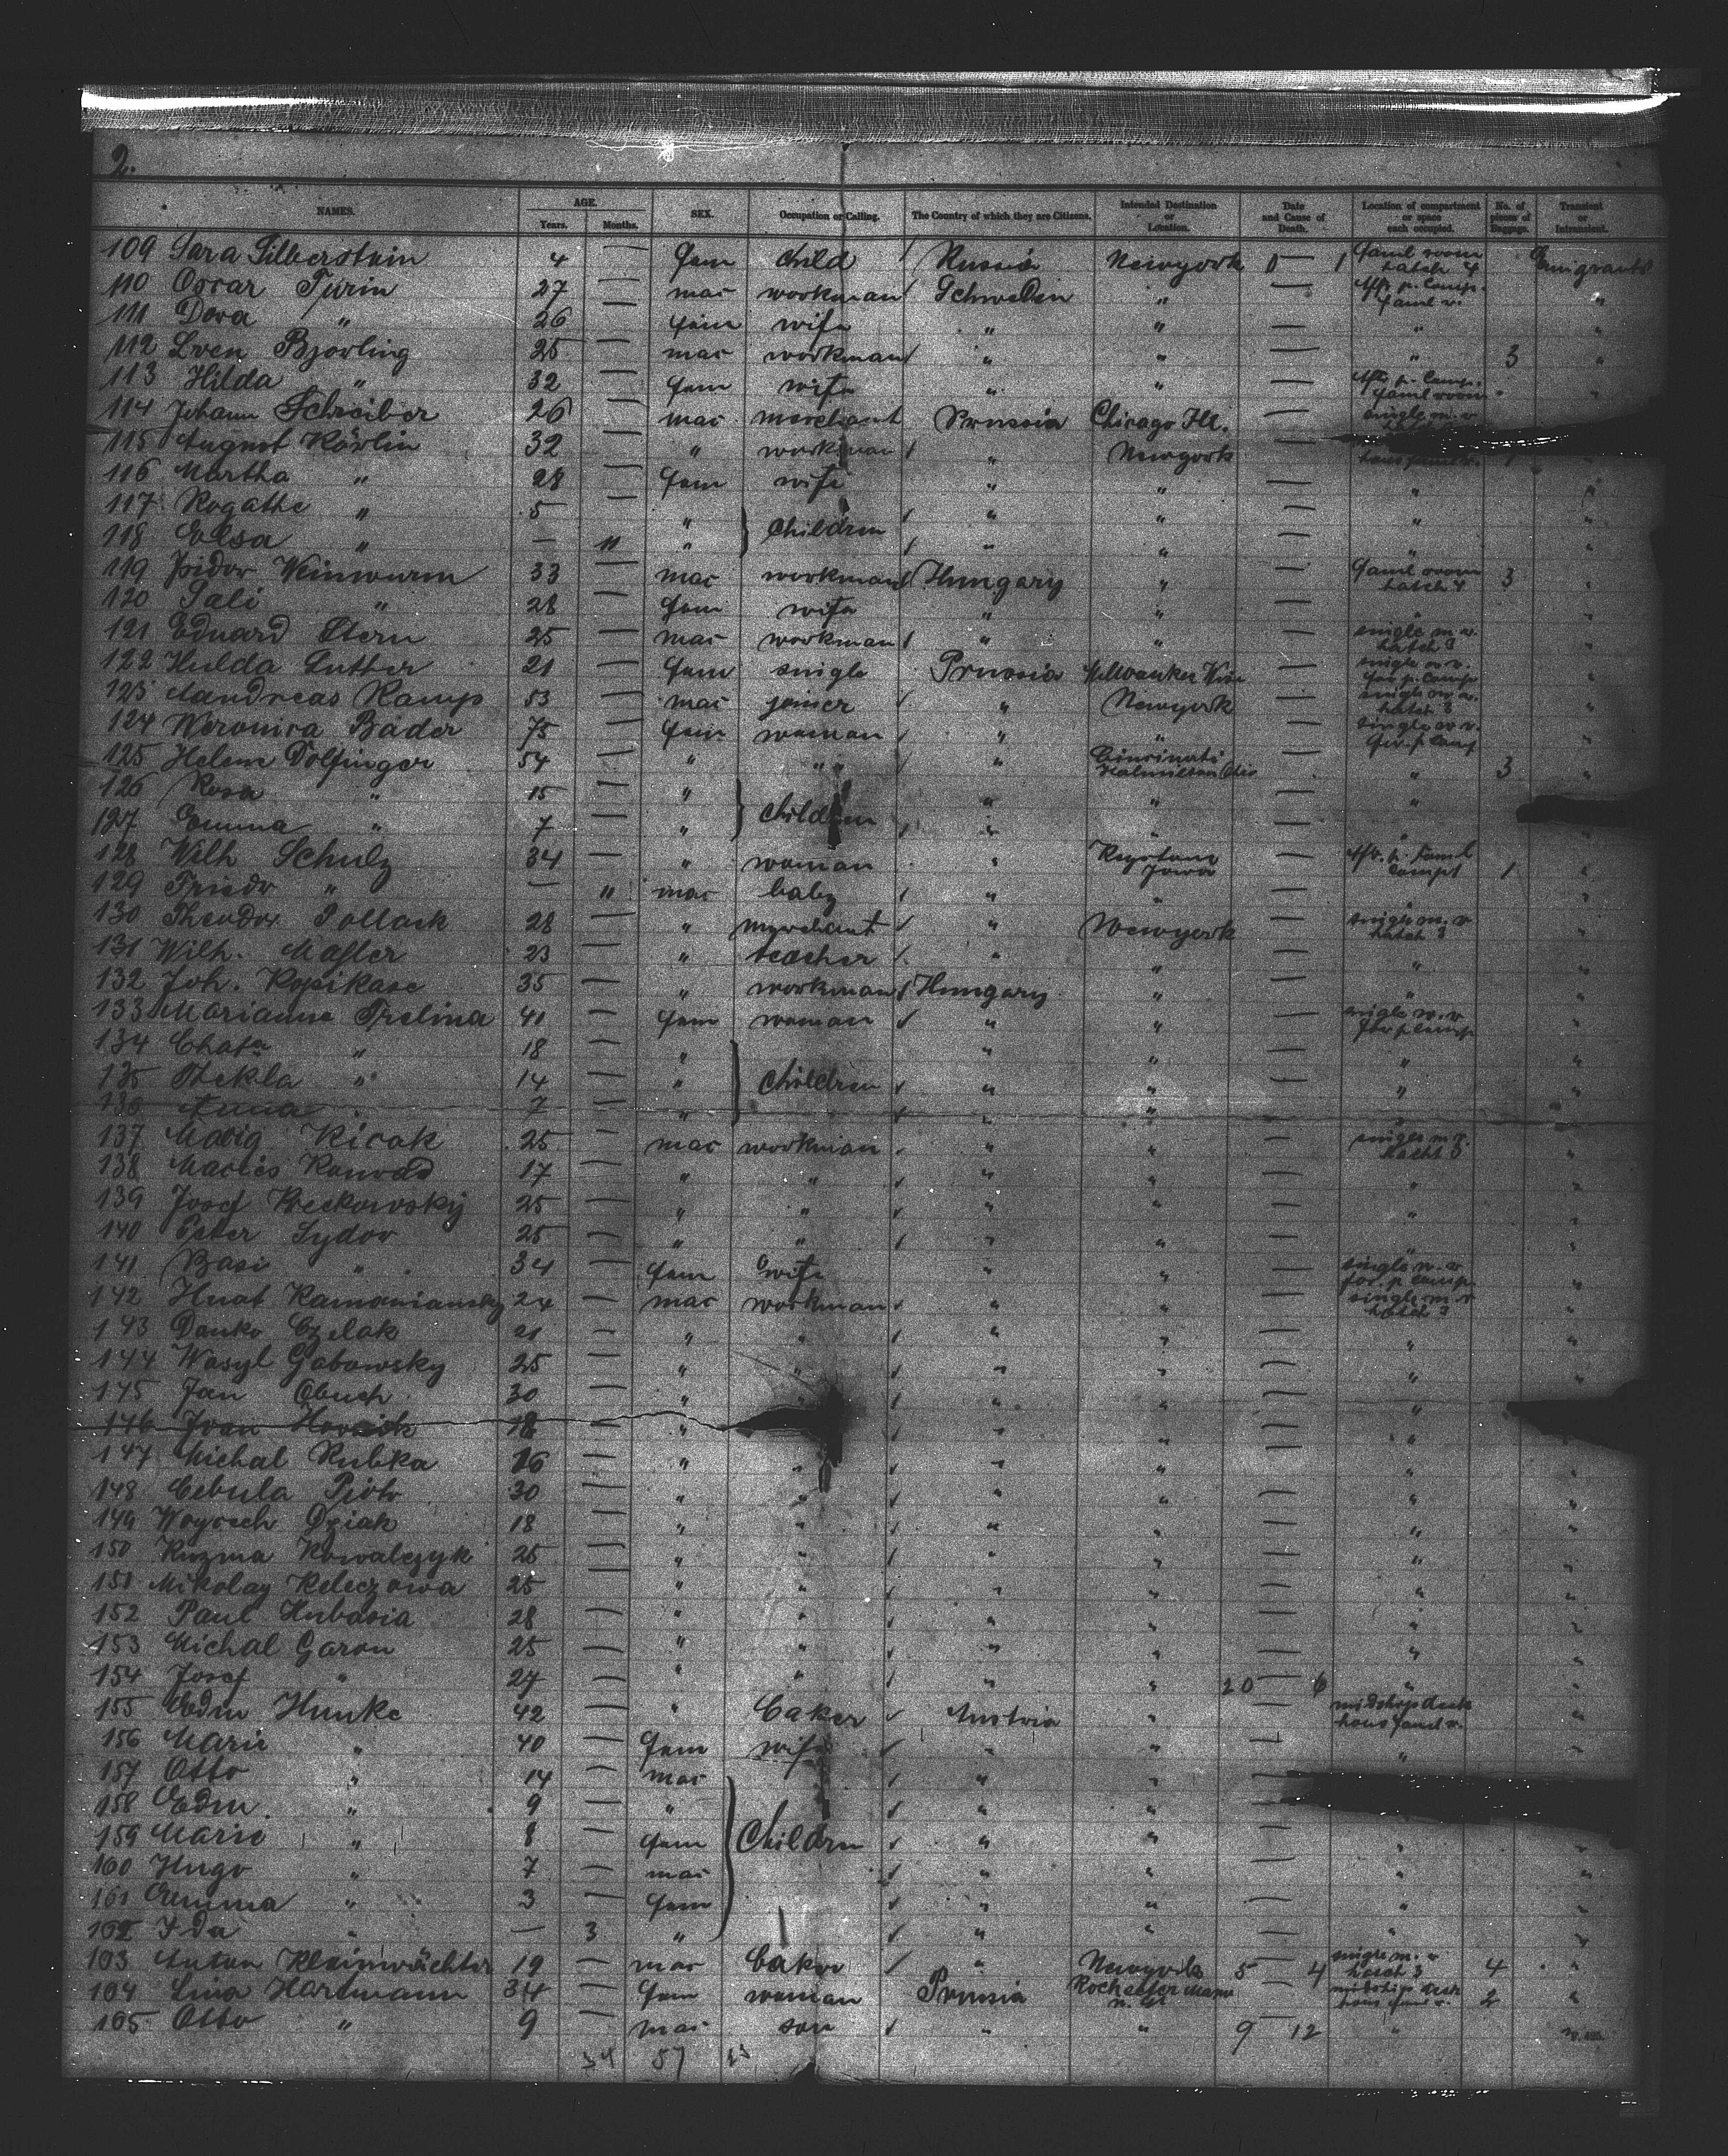 2.
NAMES. AGE. Years. Months. SEX. Occupation or Calling. The Country of which they are Citizens. Intended Destination or Location. Date and Cause of Death. Location of compartment or space each occupied. No. of pieces of Baggage. Transient or Intransient.
109 Sara Silberstein 4 — fem child Russia Newyork — famil room hatch 4 Emigrants
110 Oscar Turin 27 — mas workman Schweden " — "
111 Dora " 26 — fem wife " " — " "
112 Sven Bjorling 25 — mas workman " " — " 3 "
113 Hilda " 32 — fem wife " " — "
114 Johann Schreiber 26 — mas merchant Prussia Chicago Ill. — single m. r.
115 August 32 — " workman " Newyork —
116 Martha " 28 — fem wife " " — " "
117 Rogathe " 5 — " Children " " — " "
118 Elsa " — 11 " " " — " "
119 Isidor Weinwurm 33 — mas workman Hungary " — famil room hatch 4 3 "
120 Sali " 28 — fem wife " " — " "
121 Eduard Stern 25 — mas workman " " — single m. r. hatch 3 "
122 Hulda Lutter 21 — fem single Prussia — single w. r. for p. comp
123 Andreas Kamp 53 — mas joiner " Newyork — single m. r. hatch 3 "
124 Weronica Bäder 75 — fem woman " " — single w. r. "
125 Helene Dolfinger 54 — " " " Cincinati — " 3 "
126 Rosa " 15 — " Children " " — "
127 Emma " 7 — " " " — " "
128 Wilh Schulz 34 — " woman " Keystone Iowa — 1 "
129 Friedr " — 11 mas baby " " — " "
130 Theodor Pollack 28 — " merchant " Newyork — single m. r. hatch 3 "
131 Wilh. 23 — " teacher " " — " "
132 Joh. 35 — " workman Hungary " — " "
133 Marianna Trelina 41 — fem woman " " — single w. r. for p comp "
134 " 18 — " Children " " — " "
135 Thekla " 14 — " " " — " "
136 Anna " 7 — " " " — " "
137 25 — mas workman " " — single m. r. "
138 17 — " " " " — " "
139 Josef 25 — " " " " — " "
140 Peter Sydor 25 — " " " " — " "
141 Basi " 34 — fem wife " " — single w. r. for. p comp "
142 24 — mas workman " " — single m r hatch 3 "
143 Danko Czelak 21 — " " " " — " "
144 Wasyl Gabowsky 25 — " " " " — " "
145 Jan Obuch 30 — " " " " — "
146 Ivan 18 — " " " — "
147 Michal Rubka 16 — " " " " — " "
148 Cebula Piotr 30 — " " " " — " "
149 Woyrech Dziak 18 — " " " " — " "
150 Kuzma Kowalczyk 25 — " " " " — " "
151 Mikolay Keleczawa 25 — " " " " — " "
152 Paul Hubasia 28 — " " " " — " "
153 Michal Garon 25 — " " " " — " "
154 Josef " 27 — " " " " 20 — 6 " "
155 Edm Hunke 42 — " Baker Austria " — midship deck "
156 Marie " 40 — fem wife " " — " "
157 Otto " 14 — mas Children " " —
158 Edm. " 9 — " " " —
159 Marie " 8 — fem " " — " "
160 Hugo " 7 — mas " " — " "
161 Emma " 3 — fem " " — " "
162 Ida " — 3 " " " — " "
163 Anton Kleinwächter 19 — mas Baker " Newyork 5 — 4 single m. r. hatch 3 4 "
164 Lina Hartmann 34 — fem woman Prussia Rochester — midship deck 2 "
165 Otto " 9 — mas son " " 9 12 "
34 57